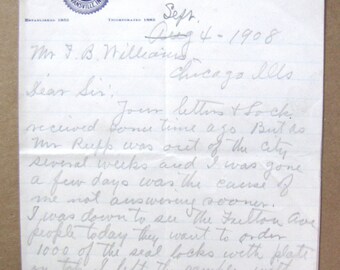 ANSVILLE, IN
ESTABLISHED 18
INCORPORATED 1902
Sept.
Aug 4 - 1908
Mr F B Williams
Chicago Ills
Dear Sir:
Your letters & Lock
received some time ago. But as
Mr Rupp was out of the city
several weeks and I was gone
a few days was the cause of
me not answering sooner.
I was down to see the Fulton Ave
people today they want to order
1000 of the seal locks with plate